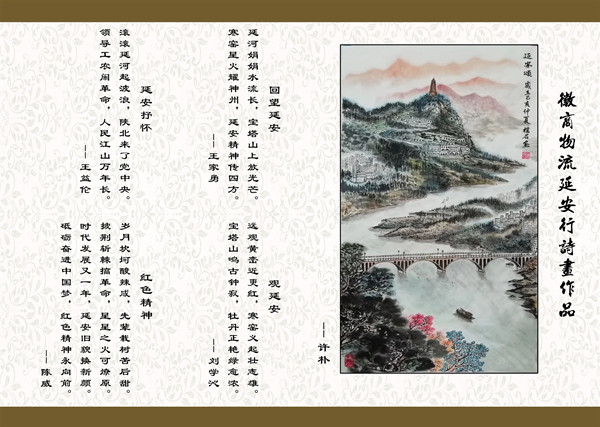 徽商物流延安行詩畫作品
延安頌
——许朴
回望延安
延河娟娟水流长，宝塔山上放光芒。
寒窑星火耀神州，延安精神传四方。
——王家勇
观延安
远观黄峦近更红，寒窑义起壮志雄。
宝塔山鸣古钟寂，牡丹正艳绿愈浓。
——刘学沁
延安抒怀
滚滚延河起波浪，陕北来了党中央。
领导工农闹革命，人民江山万年长。
——王益伦
红色精神
岁月坎坷酸辣咸，先辈栽树苦后甜。
披荆斩棘搞革命，星星之火可燎原。
时代发展又一年，延安旧貌换新颜。
砥砺奋进中国梦，红色精神永向前。
——陈威